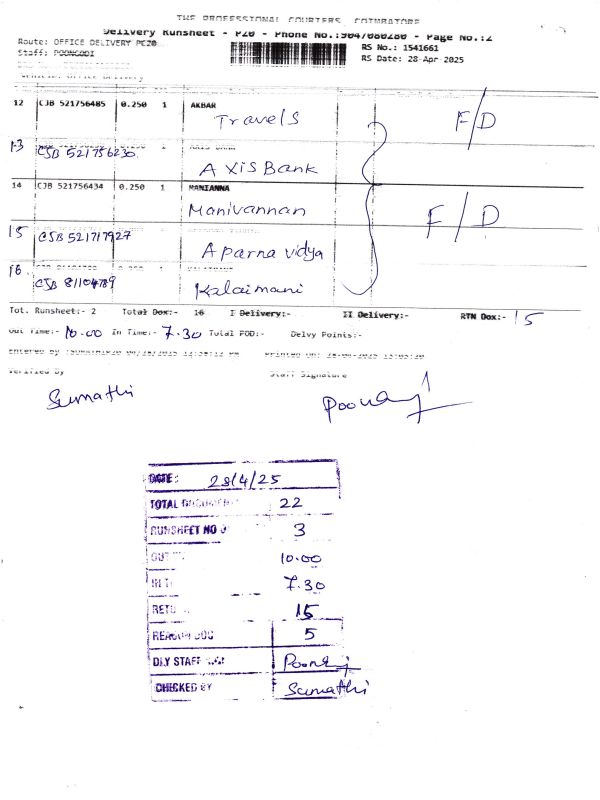 THE PROFESSIONAL COURIERS, COIMBATORE
Delivery Runsheet - P20 - Phone No.:9047080280 - Page No.:2
Route: OFFICE DELIVERY PEZ0
RS No.: 1541661
Staff: POONGODI
RS Date: 28-Apr-2025
Vehicle: Office Delivery
12 CJB 521756485 0.250 1 AKBAR
Travels F/D
13 CJB 521756230 AXIS BANK
Axis Bank
14 CJB 521756434 0.250 1 MANIANNA
Manivannan F/D
15 CJB 521717927
Aparna vidya
16 CJB 81104789 0.250 1
Kalaimani
Tot. Runsheet:- 2 Total Dox:- 16 I Delivery:- II Delivery:- RTN Dox:- 15
Out Time:- 10.00 In Time:- 7.30 Total POD:- Delvy Points:-
Verified By Staff Signature
Sumathi
DATE: 28/4/25
TOTAL DOCUMENT 22
RUNSHEET NO 3
OUT 10.00
IN T 7.30
RETU 15
REASON DOC 5
DLY STAFF
CHECKED BY Sumathi